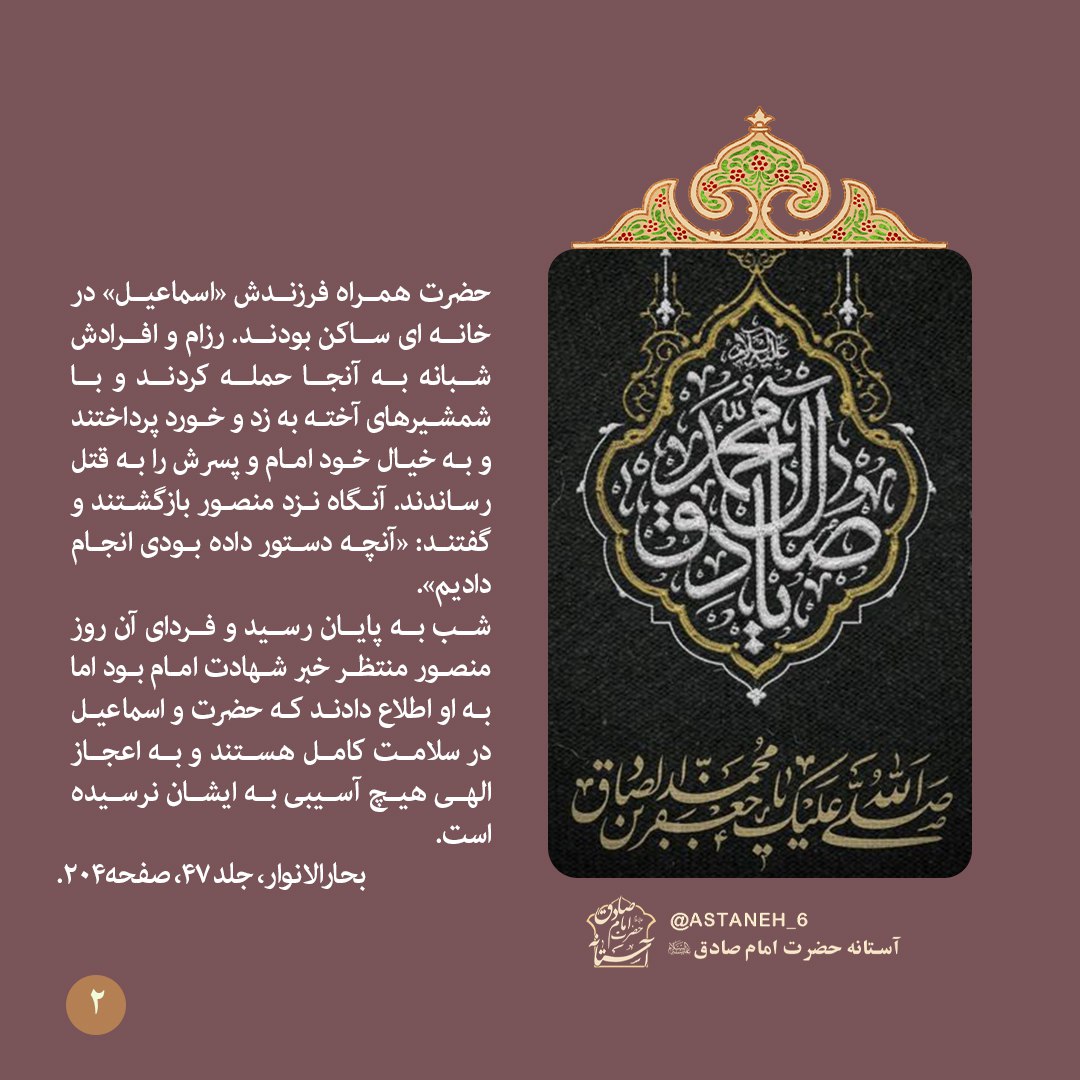 حضرت همراه فرزندش «اسماعیل» در
خانه ای ساکن بودند. رزام و افرادش
شبانه به آنجا حمله کردند و با
شمشیرهای آخته به زد و خورد پرداختند
و به خیال خود امام و پسرش را به قتل
رساندند. آنگاه نزد منصور بازگشتند و
گفتند: «آنچه دستور داده بودی انجام
دادیم».
شب به پایان رسید و فردای آن روز
منصور منتظر خبر شهادت امام بود اما
به او اطلاع دادند که حضرت و اسماعیل
در سلامت کامل هستند و به اعجاز
الهی هیچ آسیبی به ایشان نرسیده
است.
بحارالانوار، جلد ۴۷، صفحه۲۰۴.
علیه السلام
یا صادق آل محمد
صلی الله علیک یا جعفر بن محمد الصادق
@ASTANEH_6
آستانه حضرت امام صادق
آستانه حضرت امام صادق
۲